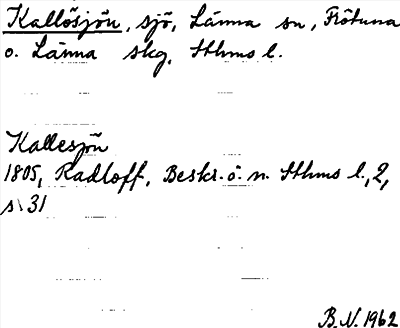 Kallösjön, sjö, Länna sn, Frötuna
o. Länna skg, Sthms l.
Kallesjön
1805, Radloff, Beskr. ö. n. Sthms l., 2,
s. 31
B.N. 1962